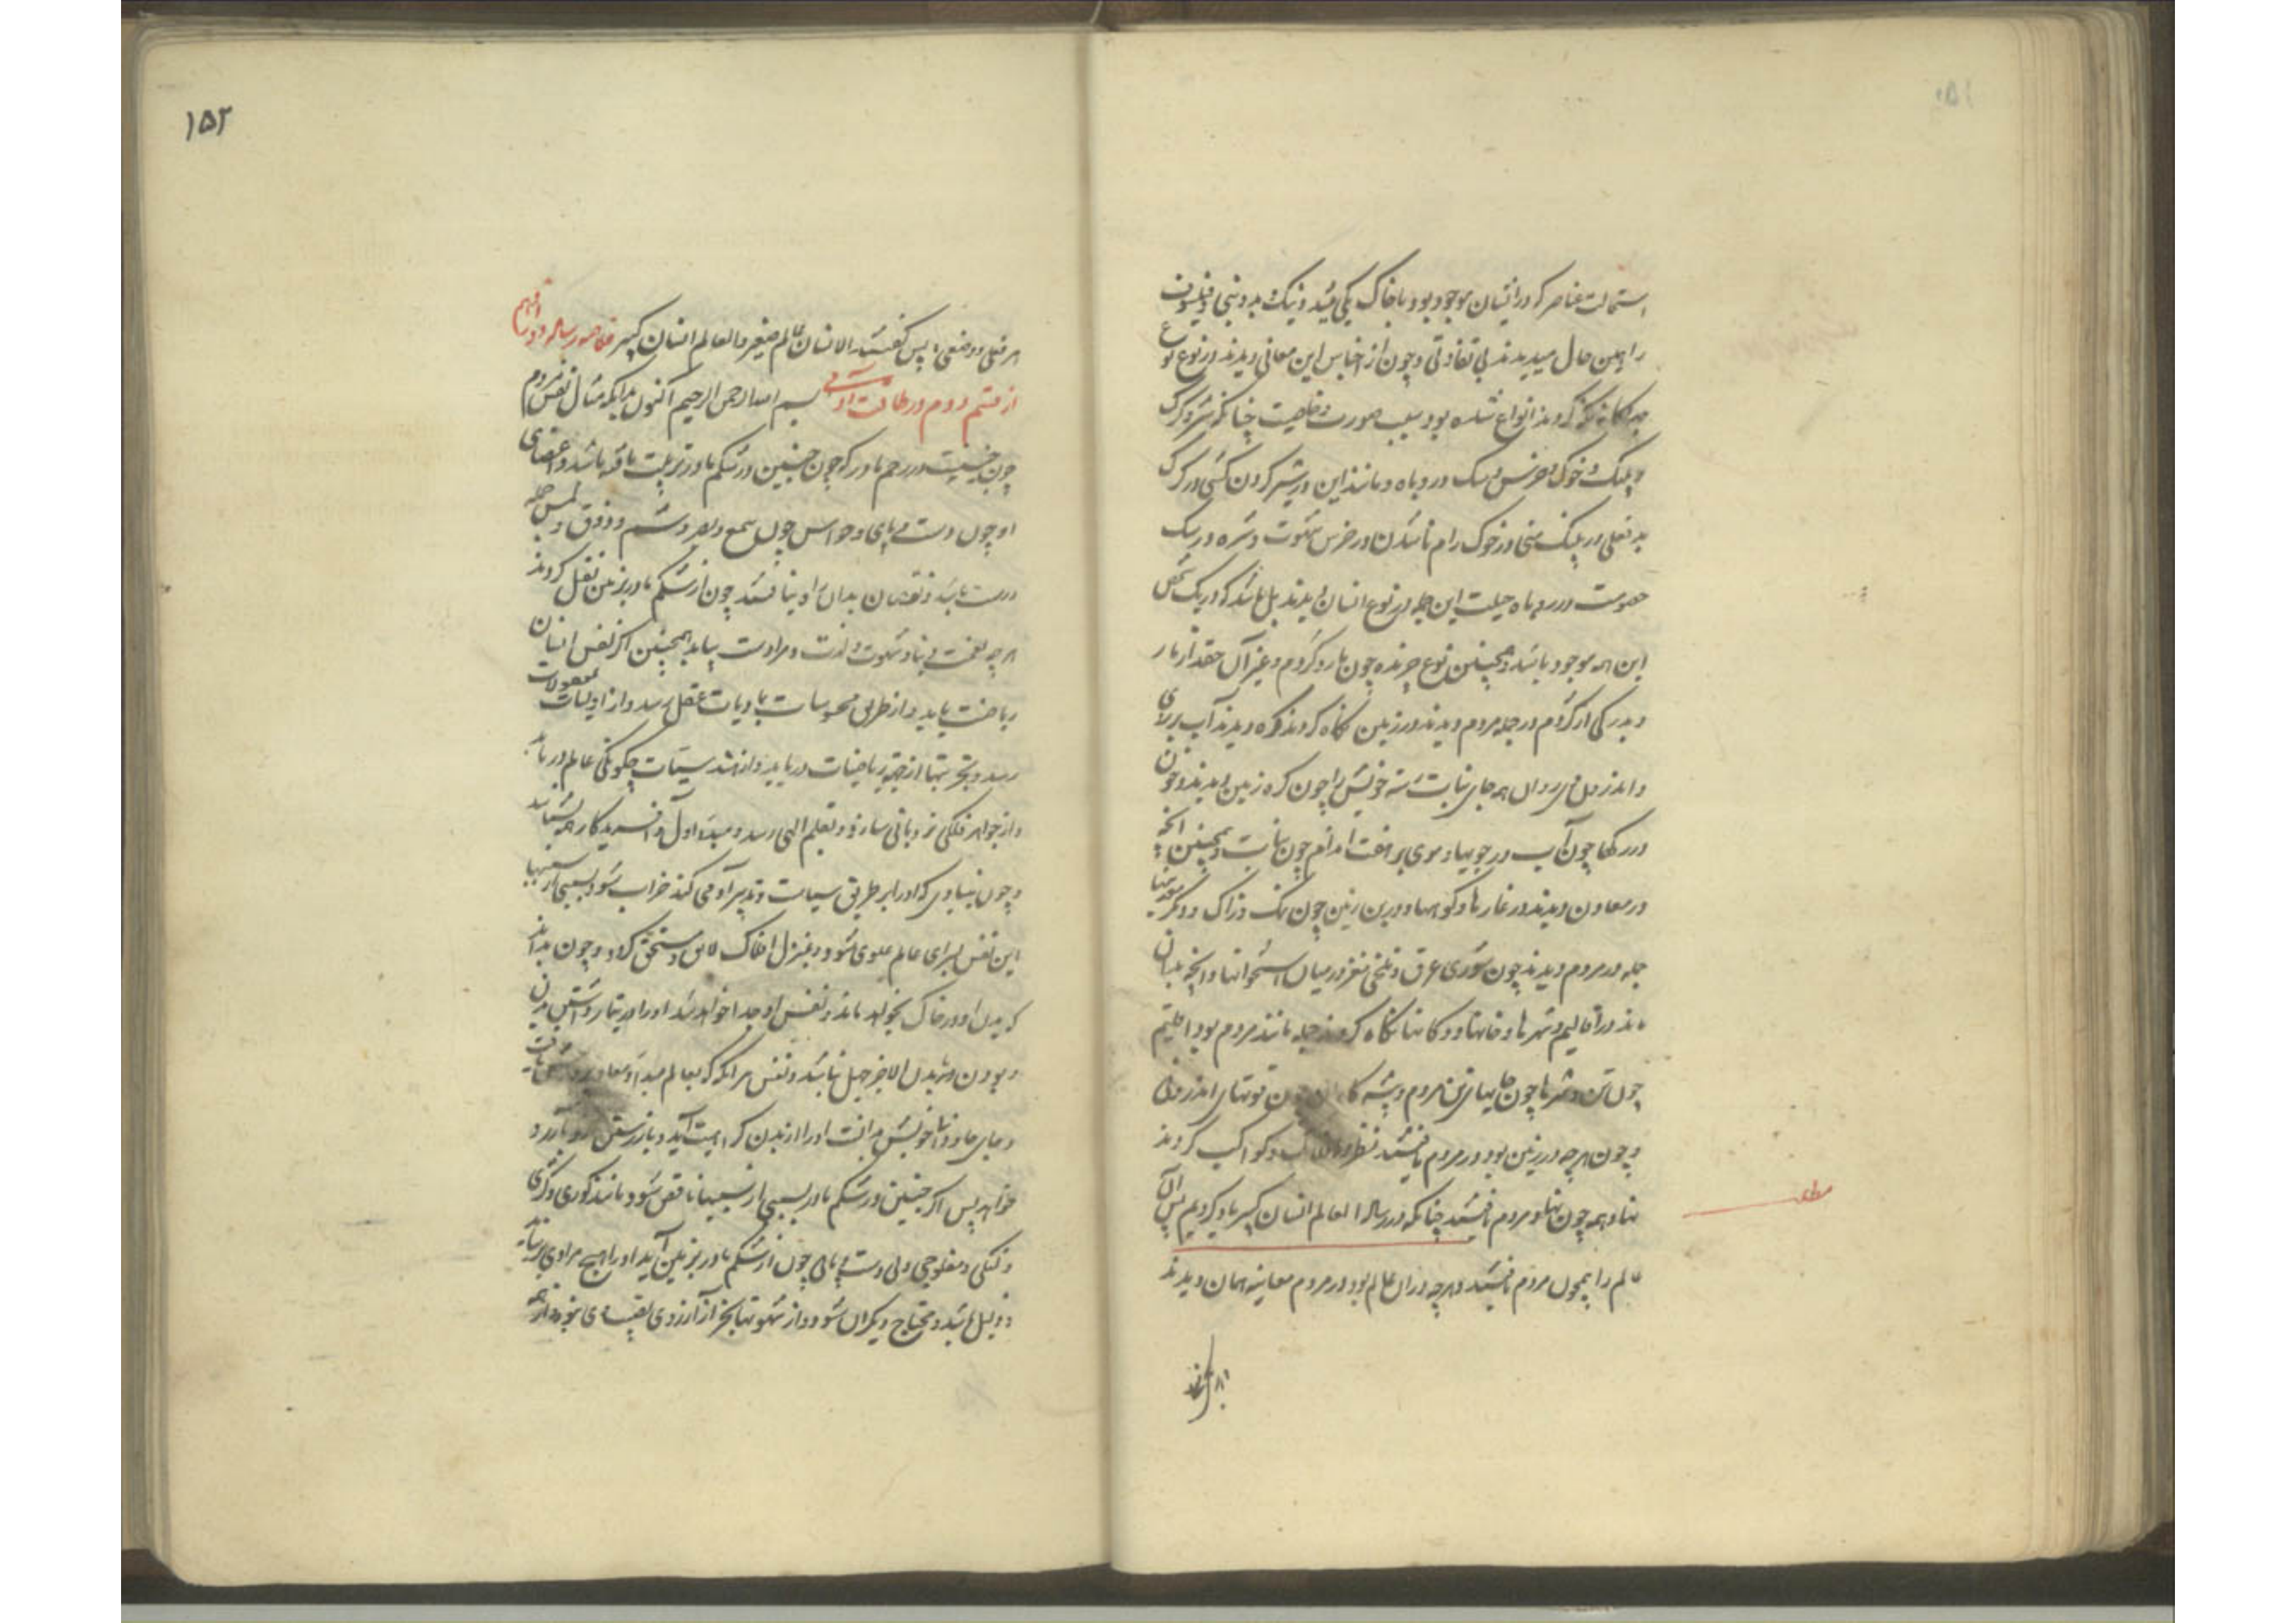 ۱۵۱
استمالت عناصر که در ایشان موجود بود با خاک یکی میشد و نیک و بد و نبی و فیلسوف
را بهین حال میدیدند بی تفاوتی و چون از اجناس این معانی دیدند در نوع نوع
نگاه کردند انواع شده بود بسبب صورت و خاصیت چنانکه شیر و گرگ
و پلنگ و خوک و خرس و سگ و روباه و مانند این در شیر گردن کشی و در گرگ
بد فعلی و در پلنگ منی و در خوک رام ناشدن و در خرس شهوت و شره و در سگ
خصومت و در روباه حیلت این جمله در نوع انسان دیدند بل باشد که در یک شخص
این همه موجود باشد و همچنین نوع چرنده چون مار و کژدم و غیر آن حقد از مار
و بدرگی از کژدم در جمله مردم دیدند و در زمین نگاه کردند کره دیدند آب بر بالای
و اندرون وی روان همه جای نبات رسته خویش را چون کره زمین دیدند و خون
در رگها چون آب در جویها و موی بر هفت اندام چون نبات و همچنین آنچه
در معادن دیدند در غارها و کوهها و در بن زمین چون نمک و زاک و دیگر سودمنها
جمله در مردم دیدند چون شوری عرق و تلخی مغز در میان استخوانها و آنچه بدان
ماند و در اقالیم و شهرها و خانها و دکانها نگاه کردند جمله مانند مردم بود اقلیم
چون تن و شهرها چون جایهای تن مردم و پیشه‌کاران چون قوتهای اندرونی
و چون هرچه در زمین بود در مردم یافتند نظر در افلاک و کواکب کردند
نهاد همه چون نهاد مردم یافتند چنانکه در رسالهٔ العالم انسان کبیر یاد کردیم پس آن
عالم را همچون مردم یافتند و هرچه در آن عالم بود در مردم معاینه همان دیدند
۱۵۲
هر فعلی و وضعی پس گفتند الانسان عالم صغیر والعالم انسان کبیر رساله دوازدهم
از قسم دوم در طاقت آدمی بسم الله الرحمن الرحیم اکنون بدانکه مثال نفس مردم
چون جنینیست در رحم مادر که چون جنین در شکم مادر تربیت یافته باشد و اعضای
او چون دست و پای و حواس چون سمع و بصر و شم و ذوق و لمس جمله
درست باشد و نقصان بدان راه نیافتند چون از شکم مادر بزمین نقل کردند
هرچه نعمت دنیا و شهوت و لذت و مرادست بیابد همچنین اگر نفس انسان
ریاضت یابد و از طریق محسوسات بادیات عقل رسد و از اولیات معقولات
رسد و بتجربتها از جهة ریاضیات دریابد و از هندسیات چگونگی عالم دریابد
و از جواهر فلکی نردبانی سازد و بعلم الهی رسد و مبدء اول و آفریدگار همه بشناسد
و چون بنیادی که او را بر طریق سیاست و تدبیر آدمی کند خراب شود بسببی از سببها
این نفس بسرای عالم علوی شود و بمنزل افلاک لایق و مستحق گردد و چون بداند
که بدن او در خاک بخواهد ماند و نفس او جدا خواهد شد او را تیمار داشتن بدن
و بودن در بدن الا جز جهل نباشد و نفس هر آنکه که بعالم مبدأ و معاد
و جای جاودانه خویش بدانست او را از بدن کراهیت آید و باز رستن
خواهد پس اگر جنین در شکم مادر بسببی از سببها ناقص شود مانند کوری و کژی
و گنگی و مفلوجی و بی دست و پای چون از شکم مادر بزمین آید او را هیچ مرادی بر نیاید
و ذلیل باشد و محتاج دیگران شود و از شهوتها بجز از آرزوی نصیبه‌ای نبود